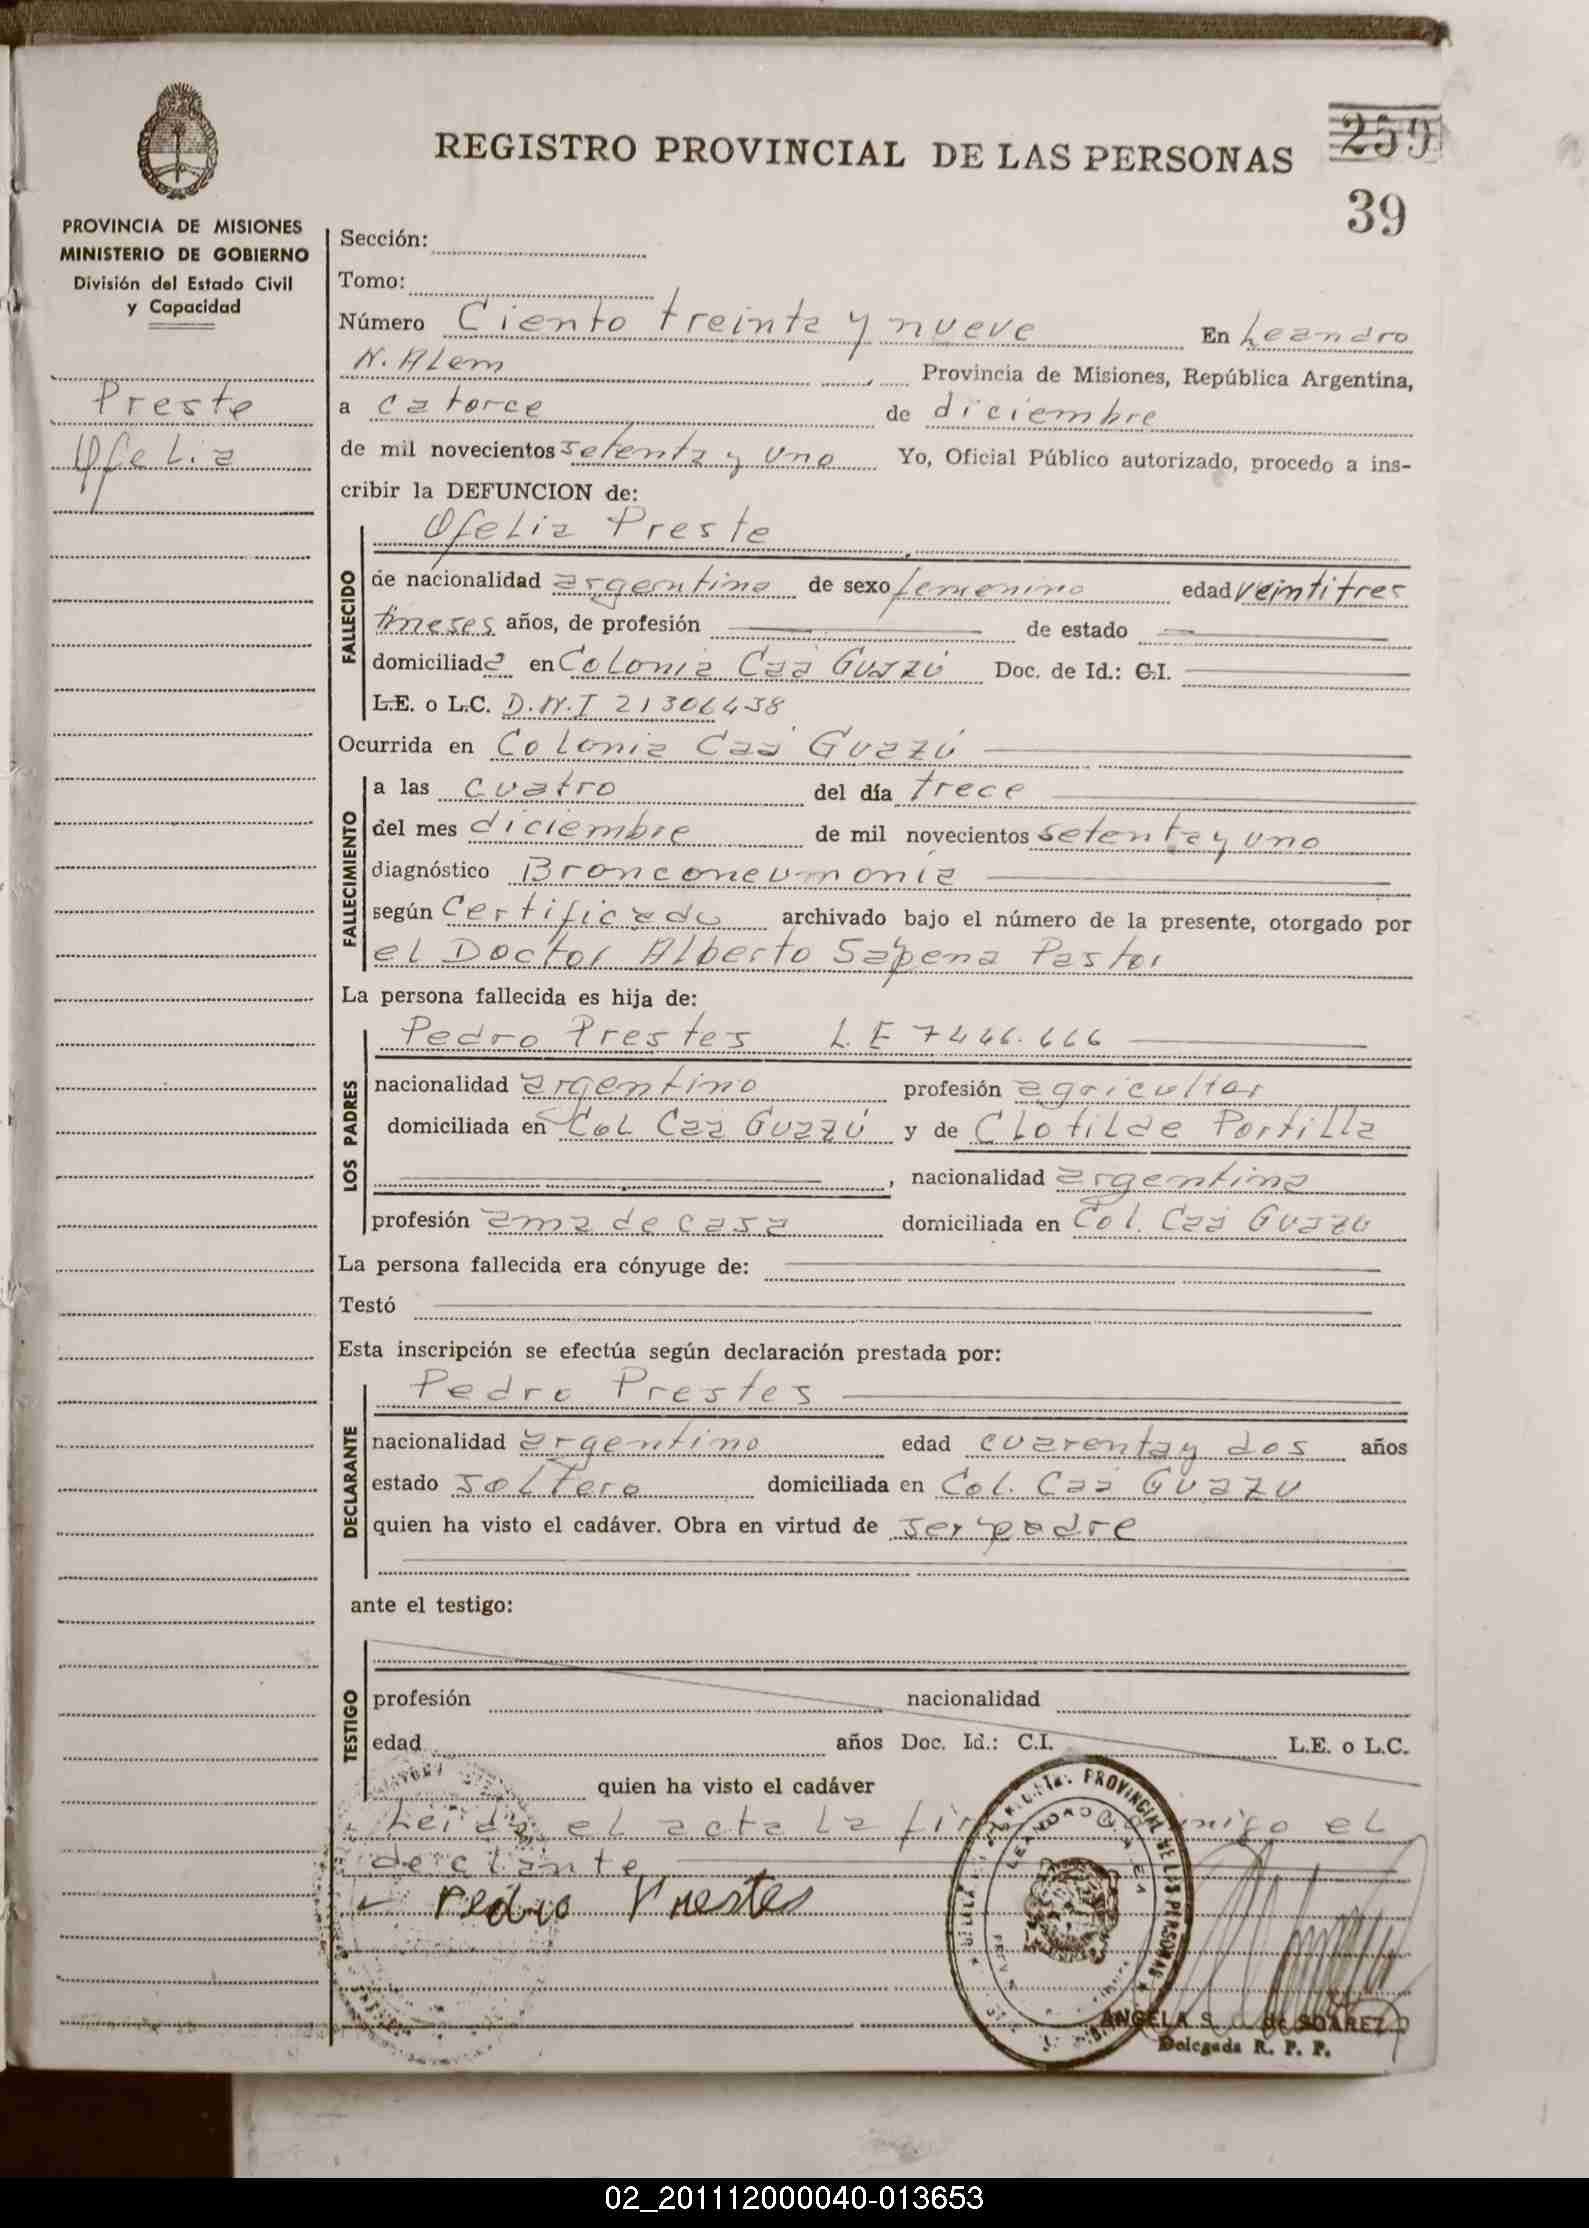 259
REGISTRO PROVINCIAL DE LAS PERSONAS
39
PROVINCIA DE MISIONES
MINISTERIO DE GOBIERNO
División del Estado Civil
y Capacidad
Preste
Ofelia
Sección:
Tomo:
Número Ciento treinta y nueve En Leandro
N. Alem Provincia de Misiones, República Argentina,
a catorce de diciembre
de mil novecientos setenta y uno Yo, Oficial Público autorizado, procedo a ins-
cribir la DEFUNCION de:
Ofelia Preste
FALLECIDO
de nacionalidad argentina de sexo femenino edad veintitres
meses años, de profesión de estado
domiciliada en Colonia Caá Guazú Doc. de Id.: C.I.
L.E. o L.C. D.N.I 21306438
Ocurrida en Colonia Caá Guazú
FALLECIMIENTO
a las cuatro del día trece
del mes diciembre de mil novecientos setenta y uno
diagnóstico Bronconeumonia
según Certificado archivado bajo el número de la presente, otorgado por
el Doctor Alberto Sapena Pastor
La persona fallecida es hija de:
LOS PADRES
Pedro Prestes L.E 7446.666
nacionalidad argentino profesión agricultor
domiciliada en Col Caá Guazú y de Clotilde Portilla
, nacionalidad argentina
profesión ama de casa domiciliada en Col. Caá Guazu
La persona fallecida era cónyuge de:
Testó
Esta inscripción se efectúa según declaración prestada por:
DECLARANTE
Pedro Prestes
nacionalidad argentino edad cuarenta y dos años
estado soltero domiciliada en Col. Caá Guazu
quien ha visto el cadáver. Obra en virtud de ser padre
ante el testigo:
TESTIGO
profesión nacionalidad
edad años Doc. Id.: C.I. L.E. o L.C.
quien ha visto el cadáver
Leida el acta la el
declante
Pedro Prestes
PROVINCIAL DE LAS PERSONAS
LEANDRO N. ALEM
ANGELA S. de SUAREZ
Delegada R. P. P.
02_201112000040-013653